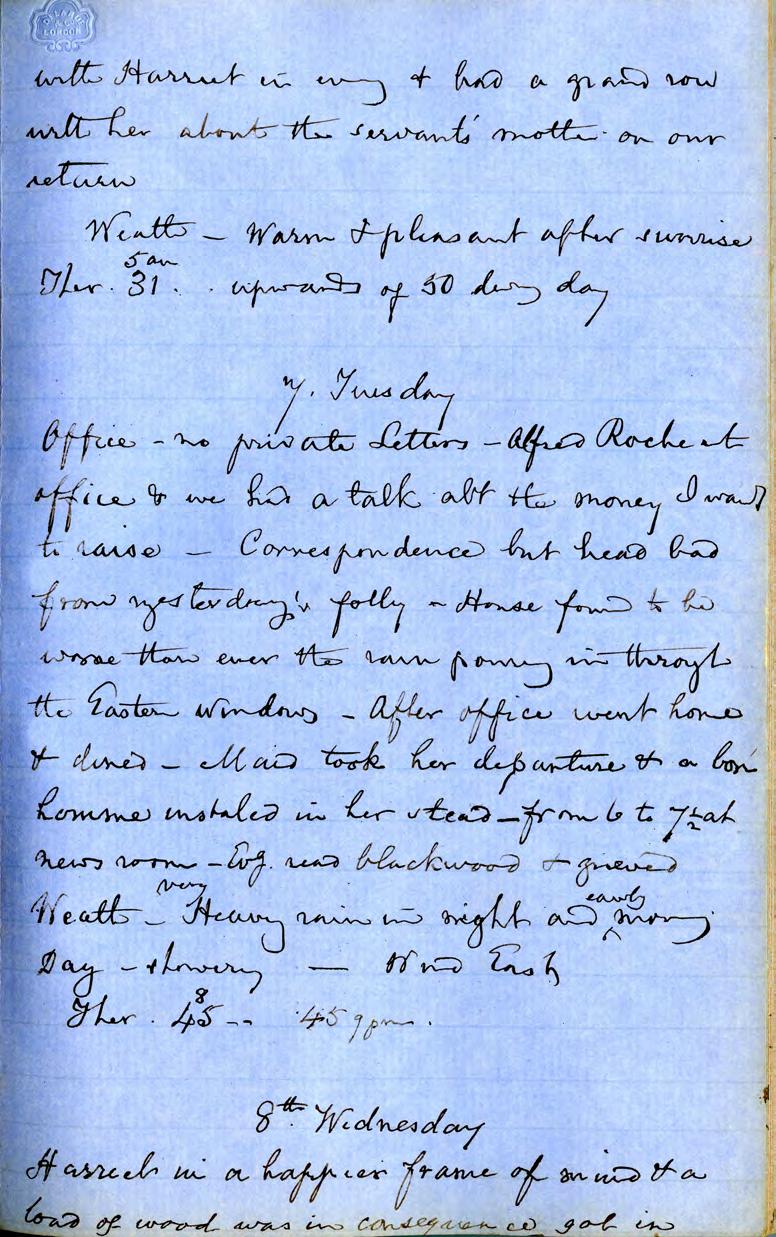 DE LA RUE
& CO
LONDON
with Harriet in evng & had a grand row
with her about the servants' motto on our
return
Weath – Warm & pleasant after sunrise
5 am
Ther. 31. . upwards of 50 durg day
7. Tuesday
Office – no private Letters – Alfred Roche at
office & we had a talk abt the money I want
to raise – Correspondence but head bad
from yesterday's folly – House found to be
worse than ever the rain pouring in through
the Eastern windows – After office went home
& dined – Maid took her departure & a bon
homme instaled in her stead – from 6 to 7½ at
news room – Evg. read blackwood & grieved
Weath – very Heavy rain in night and early morng
Day – showery — Wind East
8
Ther. 45 -- 45 9 pm.
8th. Wednesday
Harriet in a happier frame of mind & a
load of wood was in consequence got in